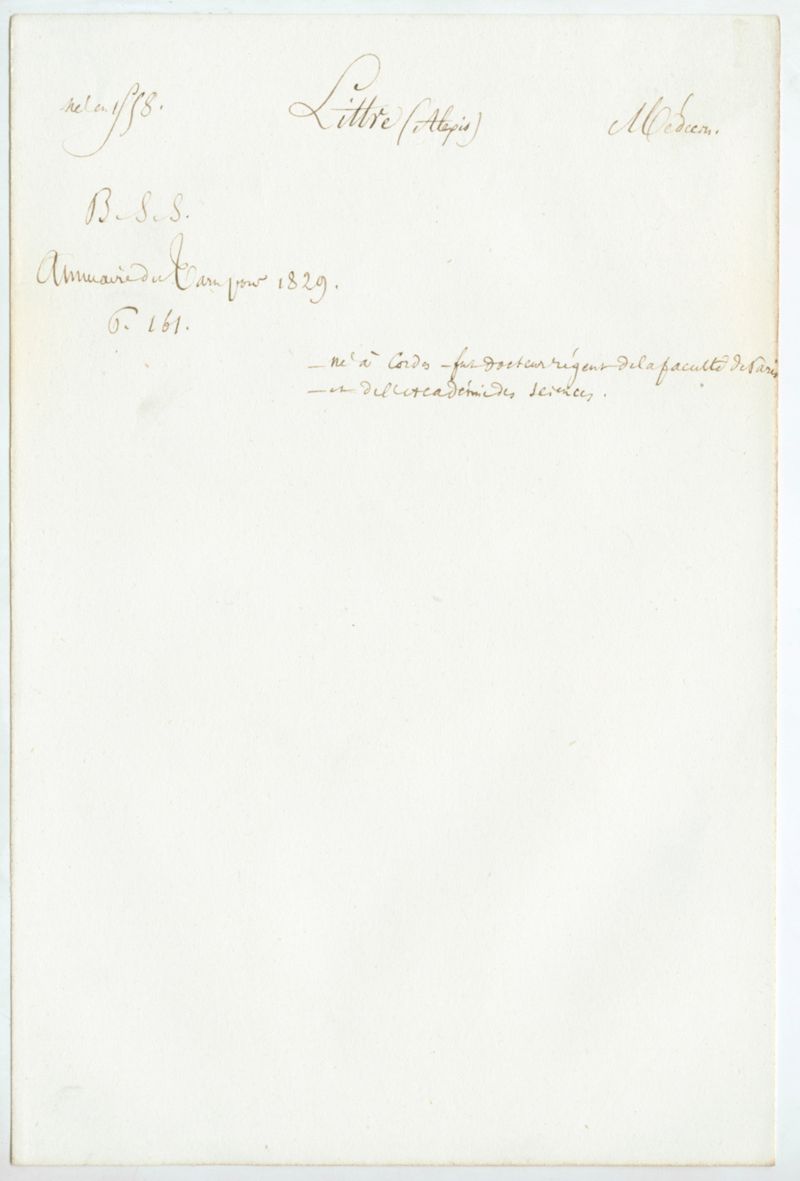 né en 1658.
Littre (Alexis)
Médecin.
B. S. S.
Annuaire du Tarn pour 1829.
P. 161.
— né à Cordes — fut docteur régent de la faculté de Paris
— et de l'Académie des sciences.